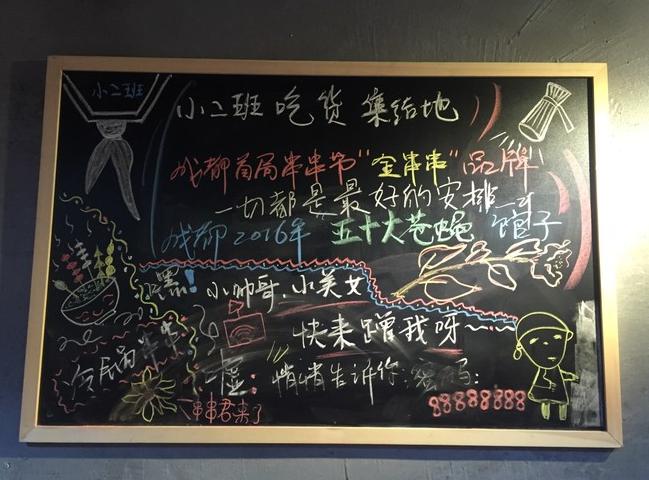 小二班
小二班 吃货 集结地
成都首届串串节"金串串"品牌
一切都是最好的安排
成都2016年 五十大苍蝇馆子
嘿!小帅哥、小美女
快来蹭我呀~~~
冷锅串串
嘘:悄悄告诉你,密码:
88888888
串串君来了